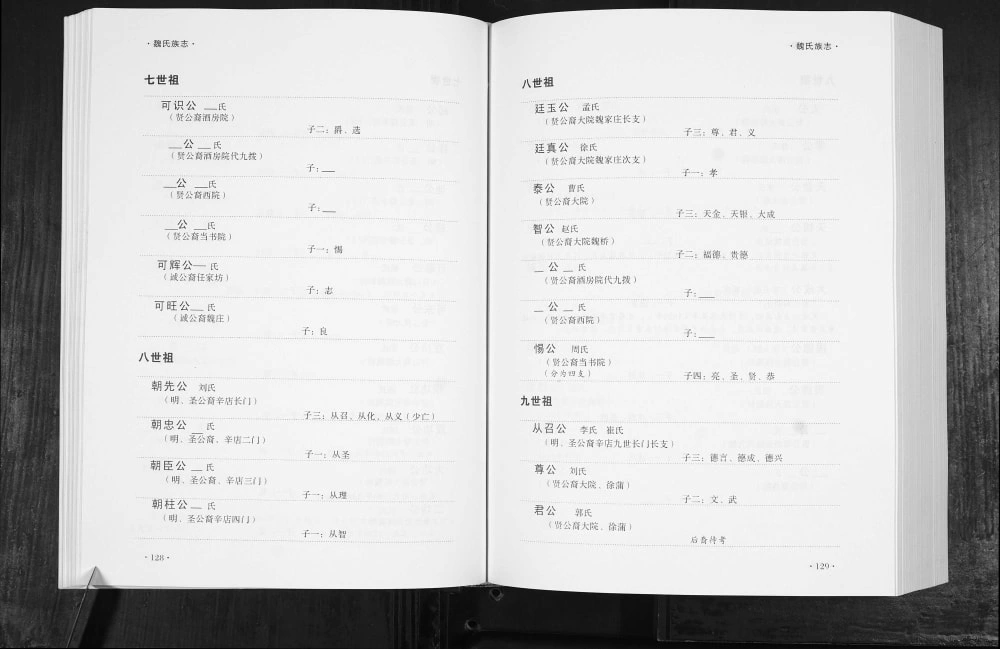 ·魏氏族志·
七世祖
可识公 __氏
（贤公裔酒房院）
子二：爵、选
__公 __氏
（贤公裔酒房院代九拨）
子：__
__公 __氏
（贤公裔西院）
子：__
__公 __氏
（贤公裔当书院）
子一：惕
可辉公— 氏
（诚公裔任家坊）
子：志
可旺公__ 氏
（诚公裔魏庄）
子：良
八世祖
朝先公 刘氏
（明、圣公裔辛店长门）
子三：从召、从化、从义（少亡）
朝忠公 __ 氏
（明、圣公裔、辛店二门）
子一：从圣
朝臣公 __ 氏
（明、圣公裔、辛店三门）
子一：从理
朝柱公__ 氏
（明、圣公裔辛店四门）
子一：从智
·128·
·魏氏族志·
八世祖
廷玉公 孟氏
（贤公裔大院魏家庄长支）
子三：尊、君、义
廷真公 徐氏
（贤公裔大院魏家庄次支）
子一：孝
泰公 曹氏
（贤公裔大院）
子三：天金、天银、大成
智公 赵氏
（贤公裔大院魏桥）
子二：福德、贵德
__ 公 __ 氏
（贤公裔酒房院代九拨）
子：__
__ 公 __ 氏
（贤公裔西院）
子：__
惕公 周氏
（贤公裔当书院）
（分为四支）
子四：亮、圣、贤、恭
九世祖
从召公 李氏 崔氏
（明、圣公裔辛店九世长门长支）
子三：德言、德成、德兴
尊公 刘氏
（贤公裔大院、徐蒲）
子二：文、武
君公 郭氏
（贤公裔大院、徐蒲）
后裔待考
·129·